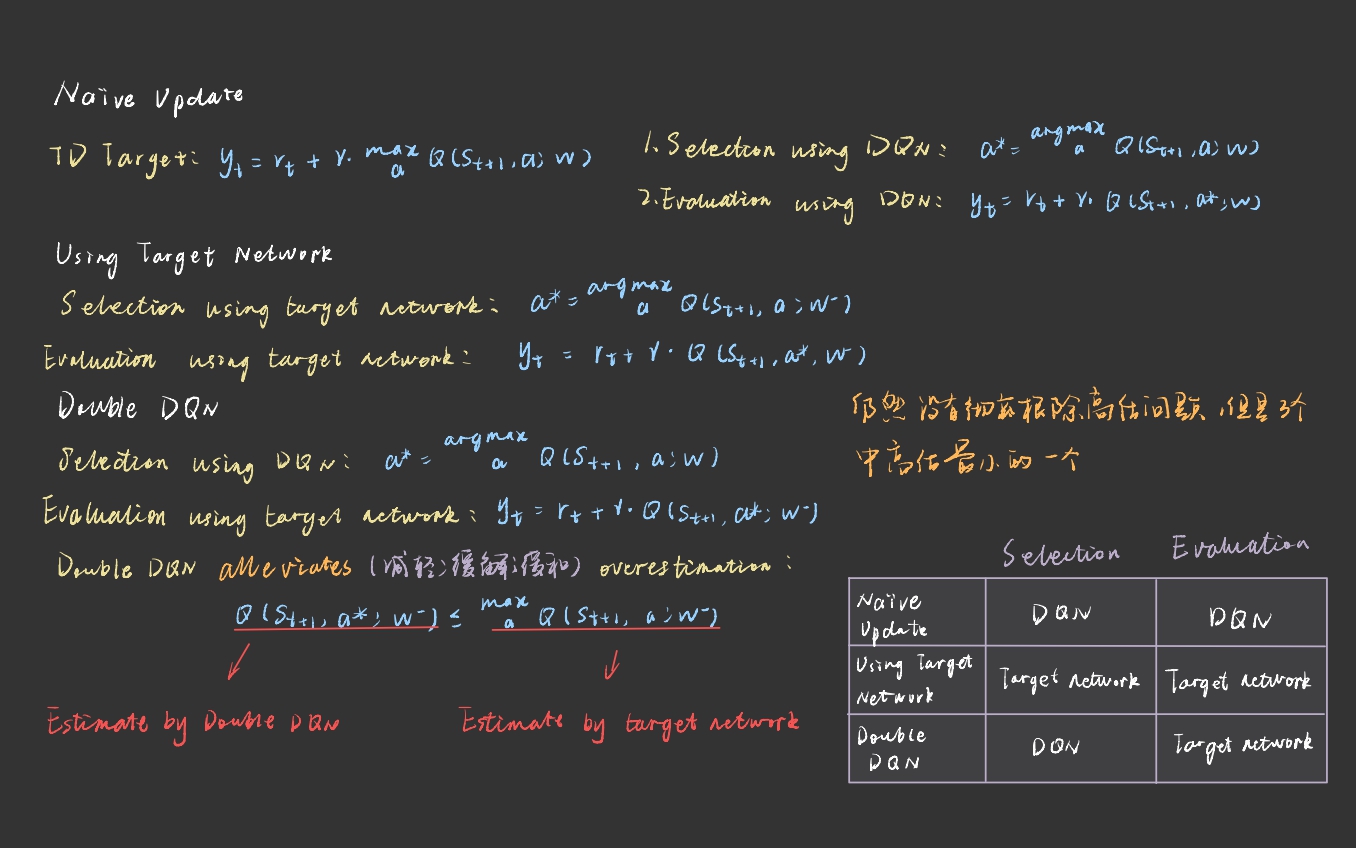 Naïve Update
TD Target: y_t = r_t + γ · max_a Q(S_{t+1}, a; w)
1. Selection using DQN: a* = argmax_a Q(S_{t+1}, a; w)
2. Evaluation using DQN: y_t = r_t + γ · Q(S_{t+1}, a*; w)
Using Target Network
Selection using target network: a* = argmax_a Q(S_{t+1}, a; w⁻)
Evaluation using target network: y_t = r_t + γ · Q(S_{t+1}, a*, w⁻)
Double DQN
Selection using DQN: a* = argmax_a Q(S_{t+1}, a; w)
Evaluation using target network: y_t = r_t + γ · Q(S_{t+1}, a*; w⁻)
仍然没有彻底根除高估问题,但是3个
中高估最小的一个
Double DQN alleviates (减轻;缓解;缓和) overestimation:
Q(S_{t+1}, a*; w⁻) ≤ max_a Q(S_{t+1}, a; w⁻)
Estimate by Double DQN
Estimate by target network
Selection Evaluation
Naïve Update DQN DQN
Using Target Network Target network Target network
Double DQN DQN Target network